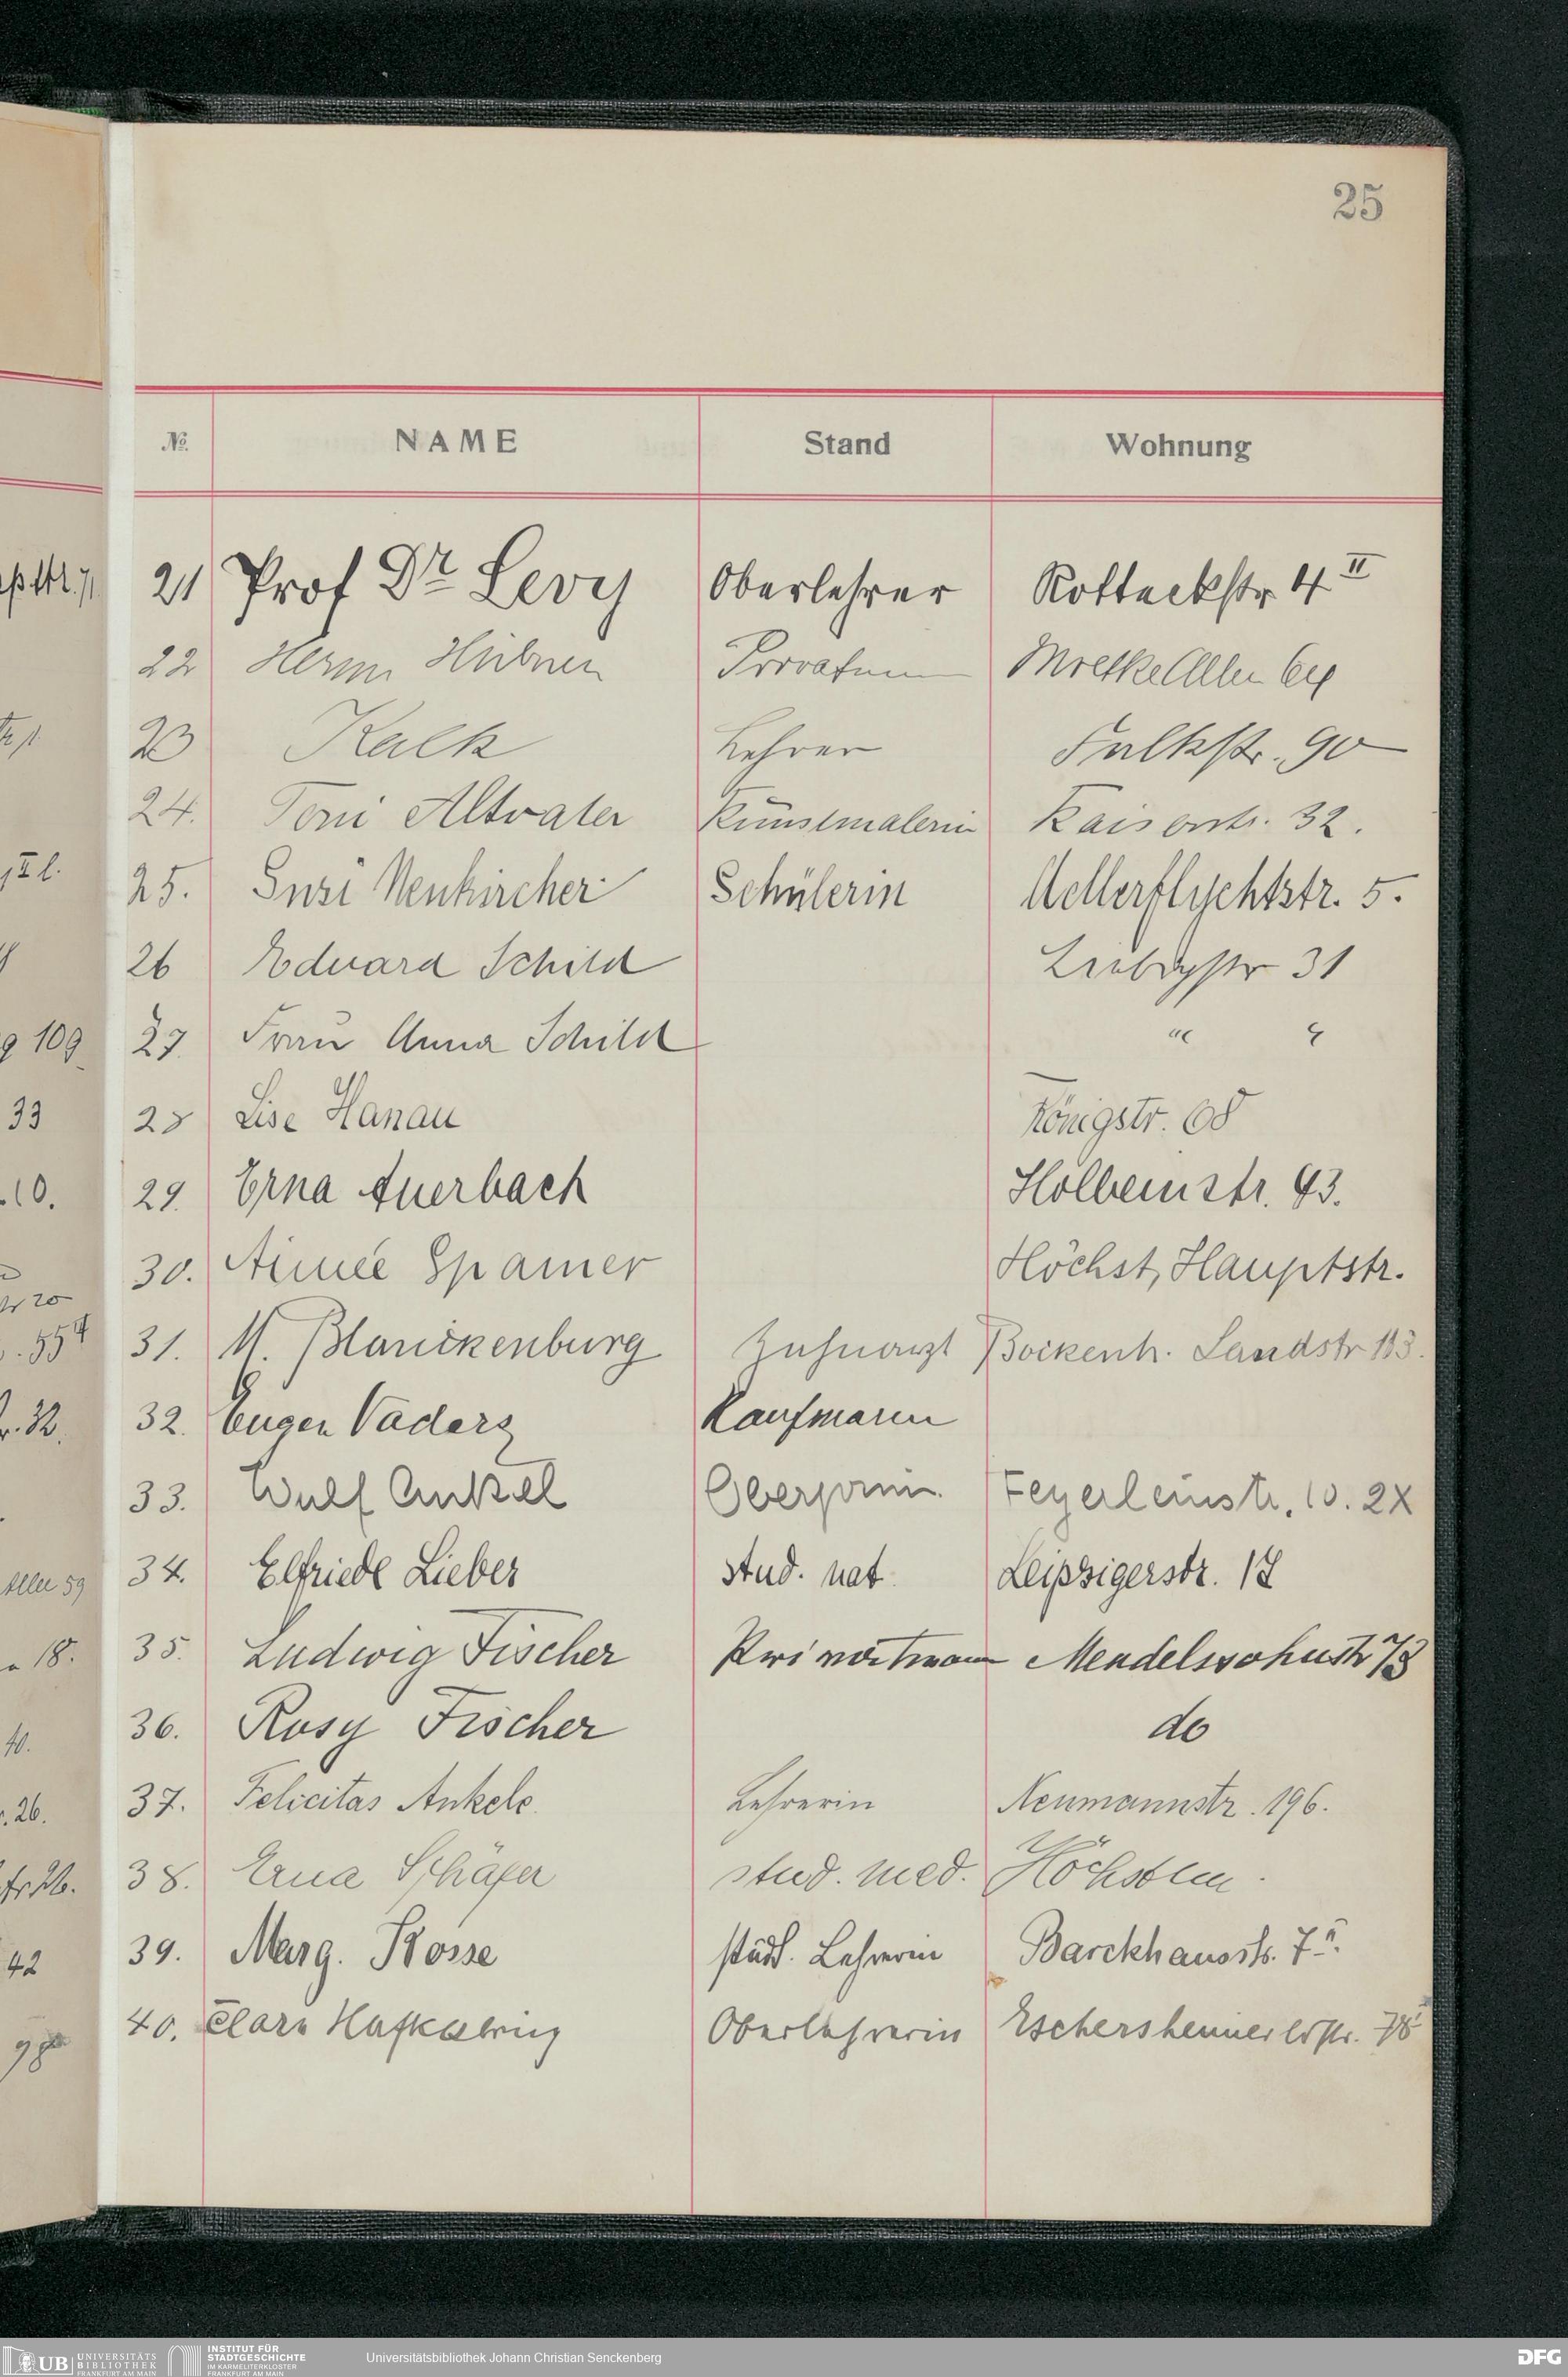 25
№ NAME Stand Wohnung
21 Prof Dr Levy Oberlehrer Rotteckstr 4 II
22 Herm Hübner
23 Kalk Lehrer Falkstr. 90
24. Toni Altvater Kunstmalerin Kaiserstr. 32.
25. Susi Neukircher Schülerin Adlerflychtstr. 5.
26 Eduard Schild Liebigstr 31
27. Frau Anna Schild " "
28 Lise Hanau Königstr. 68
29. Erna Auerbach Holbeinstr. 43.
30. Aimée Spamer Höchst, Hauptstr.
31. M. Blanckenburg Zahnarzt Bockenh. Landstr 113.
32. Eugen Vaders Kaufmann
33. Wulf Ankel Feyerleinstr. 10.
34. Elfriede Lieber stud. nat. Leipzigerstr. 17
35. Ludwig Fischer Privatmann Mendelssohnstr 73
36. Rosy Fischer do
37. Felicitas Ankele Lehrerin Neumannstr. 196.
38. Erna Schäfer stud. med.
39. Marg. Kosse städt. Lehrerin Barckhausstr. 7
40. Clara Oberlehrerin
g 109
33
10.
tr 20
. 55
r. 32.
Allee 59
18.
40.
r. 26.
42
98
UB UNIVERSITÄTS
BIBLIOTHEK
FRANKFURT AM MAIN
INSTITUT FÜR
STADTGESCHICHTE
IM KARMELITERKLOSTER
FRANKFURT AM MAIN
Universitätsbibliothek Johann Christian Senckenberg
DFG